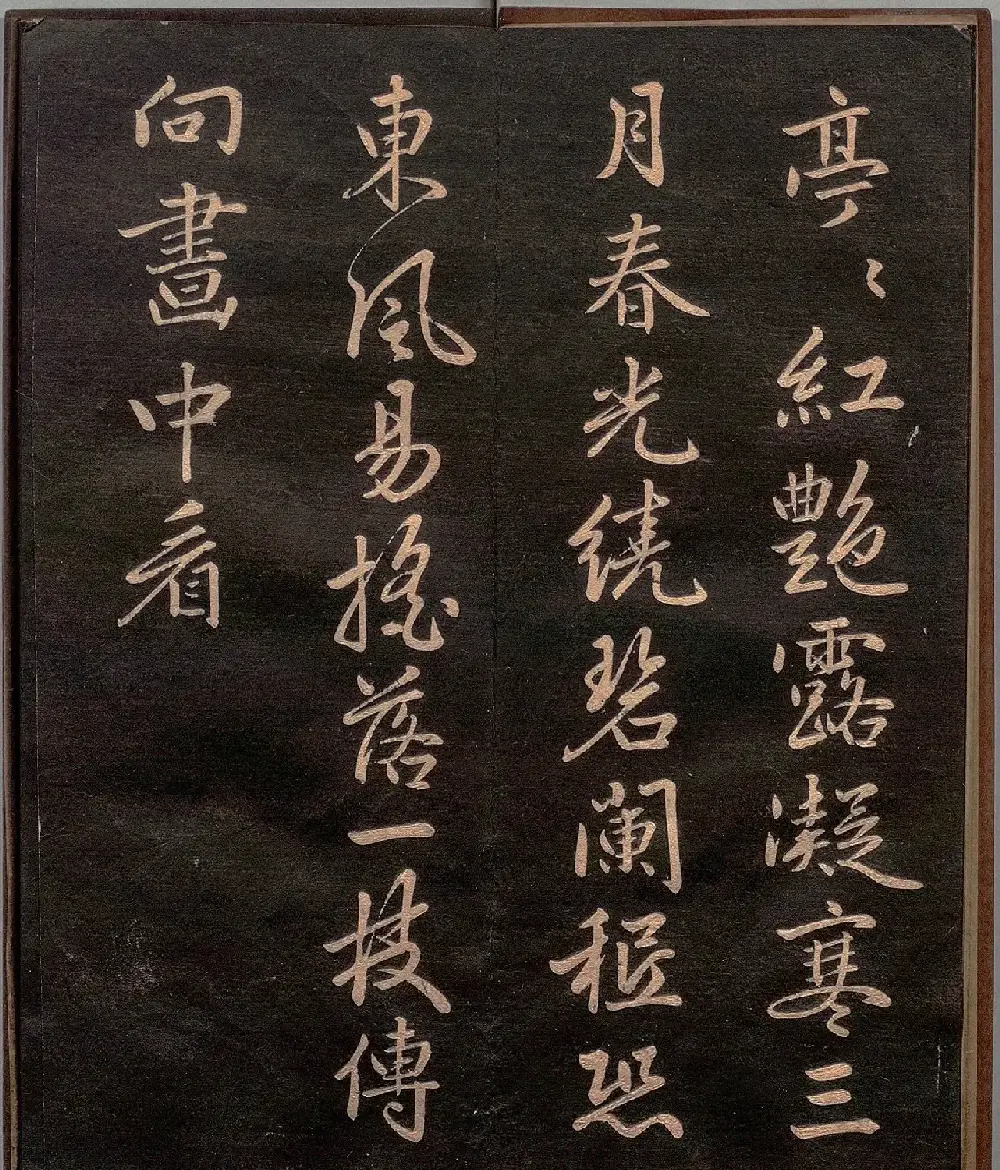 亭〻紅艶露凝寒三
月春光繞碧闌秪恐
東風易搖落一枝傳
向畫中看